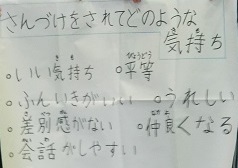 さんづけをされてどのような
気持ち
○いい気持ち ○平等
○ふんいきがいい ○うれしい
○差別感がない ○仲良くなる
○会話がしやすい